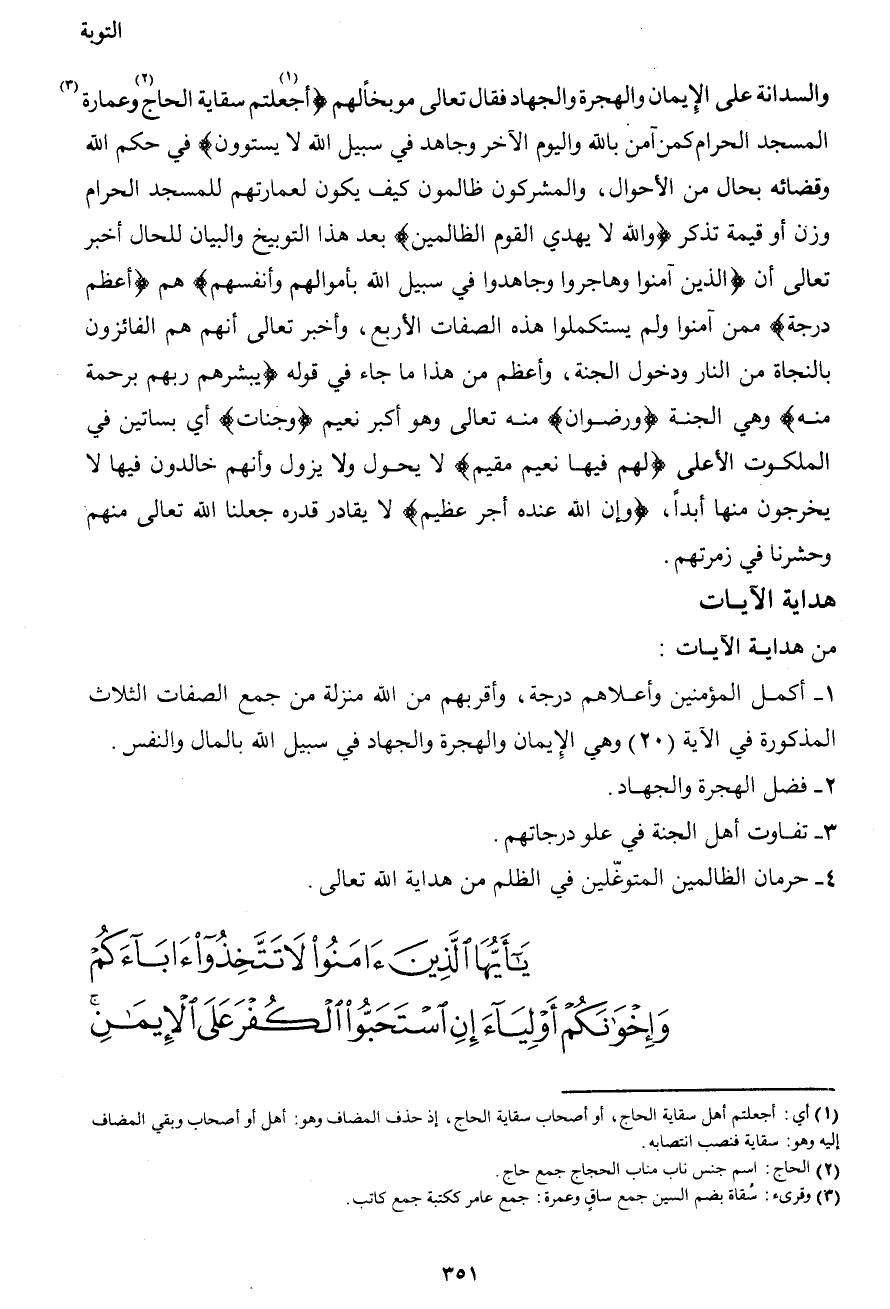 التوبة
والسدانة على الإيمان والهجرة والجهاد فقال تعالى موبخاً لهم ﴿أجعلتم(١) سقاية الحاج(٢) وعمارة(٣)
المسجد الحرام كمن آمن بالله واليوم الآخر وجاهد في سبيل الله لا يستوون﴾ في حكم الله
وقضائه بحال من الأحوال، والمشركون ظالمون كيف يكون لعمارتهم للمسجد الحرام
وزن أو قيمة تذكر ﴿والله لا يهدي القوم الظالمين﴾ بعد هذا التوبيخ والبيان للحال أخبر
تعالى أن ﴿الذين آمنوا وهاجروا وجاهدوا في سبيل الله بأموالهم وأنفسهم﴾ هم ﴿أعظم
درجة﴾ ممن آمنوا ولم يستكملوا هذه الصفات الأربع، وأخبر تعالى أنهم هم الفائزون
بالنجاة من النار ودخول الجنة، وأعظم من هذا ما جاء في قوله ﴿يبشرهم ربهم برحمة
منه﴾ وهي الجنة ﴿ورضوان﴾ منه تعالى وهو أكبر نعيم ﴿وجنات﴾ أي بساتين في
الملكوت الأعلى ﴿لهم فيها نعيم مقيم﴾ لا يحول ولا يزول وأنهم خالدون فيها لا
يخرجون منها أبداً، ﴿وإن الله عنده أجر عظيم﴾ لا يقادر قدره جعلنا الله تعالى منهم
وحشرنا في زمرتهم.
هداية الآيات
من هداية الآيات :
١ـ أكمل المؤمنين وأعلاهم درجة، وأقربهم من الله منزلة من جمع الصفات الثلاث
المذكورة في الآية (٢٠) وهي الإيمان والهجرة والجهاد في سبيل الله بالمال والنفس.
٢ـ فضل الهجرة والجهاد.
٣ـ تفاوت أهل الجنة في علو درجاتهم.
٤ـ حرمان الظالمين المتوغّلين في الظلم من هداية الله تعالى.
يَٰٓأَيُّهَا ٱلَّذِينَ ءَامَنُوا۟ لَا تَتَّخِذُوٓا۟ ءَابَآءَكُمْ
وَإِخْوَٰنَكُمْ أَوْلِيَآءَ إِنِ ٱسْتَحَبُّوا۟ ٱلْكُفْرَ عَلَى ٱلْإِيمَٰنِ ۚ
(١) أي: أجعلتم أهل سقاية الحاج، أو أصحاب سقاية الحاج، إذ حذف المضاف وهو: أهل أو أصحاب وبقي المضاف
إليه وهو: سقاية فنصب انتصابه.
(٢) الحاج: اسم جنس ناب مناب الحجاج جمع حاج.
(٣) وقرىء: سُقاة بضم السين جمع ساقٍ وعمرة: جمع عامر ككتبة جمع كاتب.
٣٥١